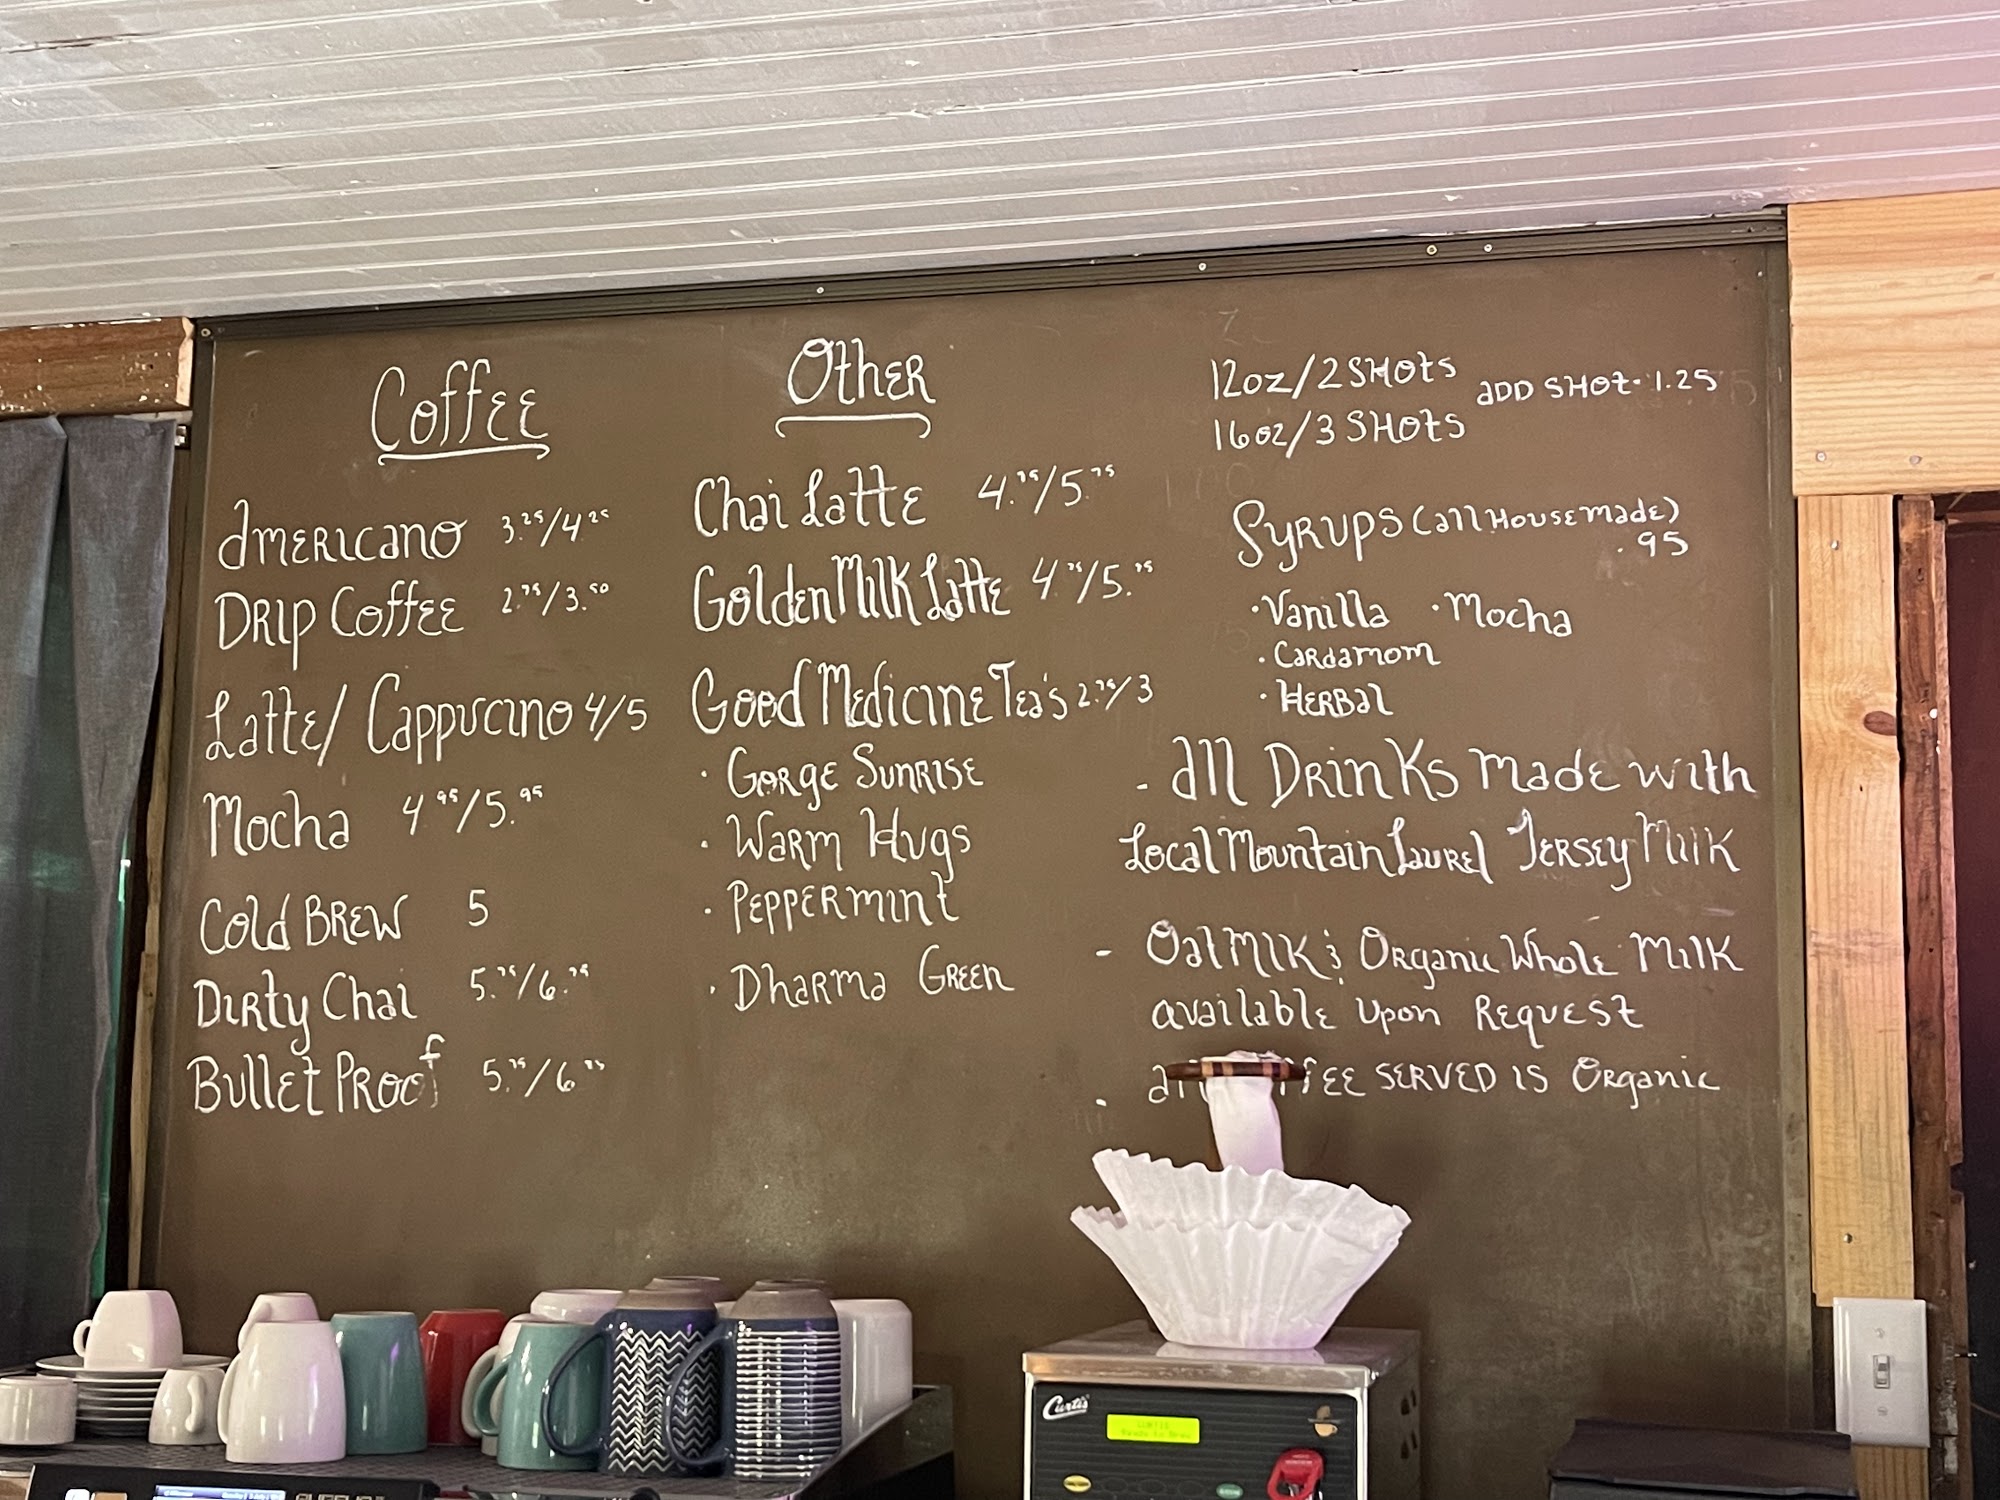 Coffee
Americano 3.25/4.25
Drip Coffee 2.75/3.50
Latte/ Cappucino 4/5
Mocha 4.95/5.95
Cold Brew 5
Dirty Chai 5.75/6.75
Bullet Proof 5.75/6.75
Other
Chai Latte 4.75/5.75
Golden Milk Latte 4.75/5.75
Good Medicine Tea's 2.75/3
· Gorge Sunrise
· Warm Hugs
· Peppermint
· Dharma Green
12oz/2 Shots
16oz/3 Shots
add shot · 1.25
Syrups (all House made)
.95
· Vanilla · Mocha
· Cardamom
· Herbal
- All Drinks made with
Local Mountain Laurel Jersey Milk
- Oat Mlk & Organic Whole Milk
available Upon Request
- served is Organic
Curtis